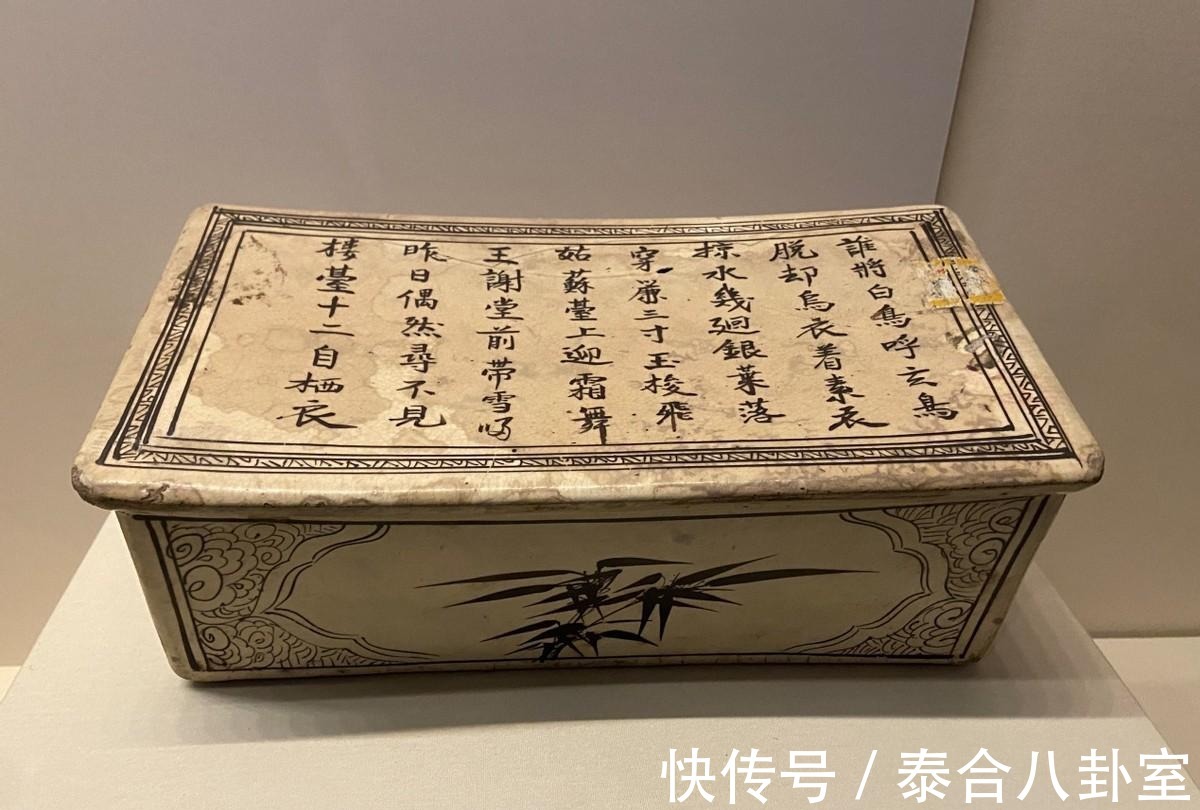 誰將白鳥呼玄鳥
脱却烏衣着素衣
掠水幾廻銀葉落
穿簾三寸玉梭飛
姑蘇臺上迎霜舞
王謝堂前带雪
昨日偶然尋不見
楼臺十二自栖
快传号 / 泰合八卦室